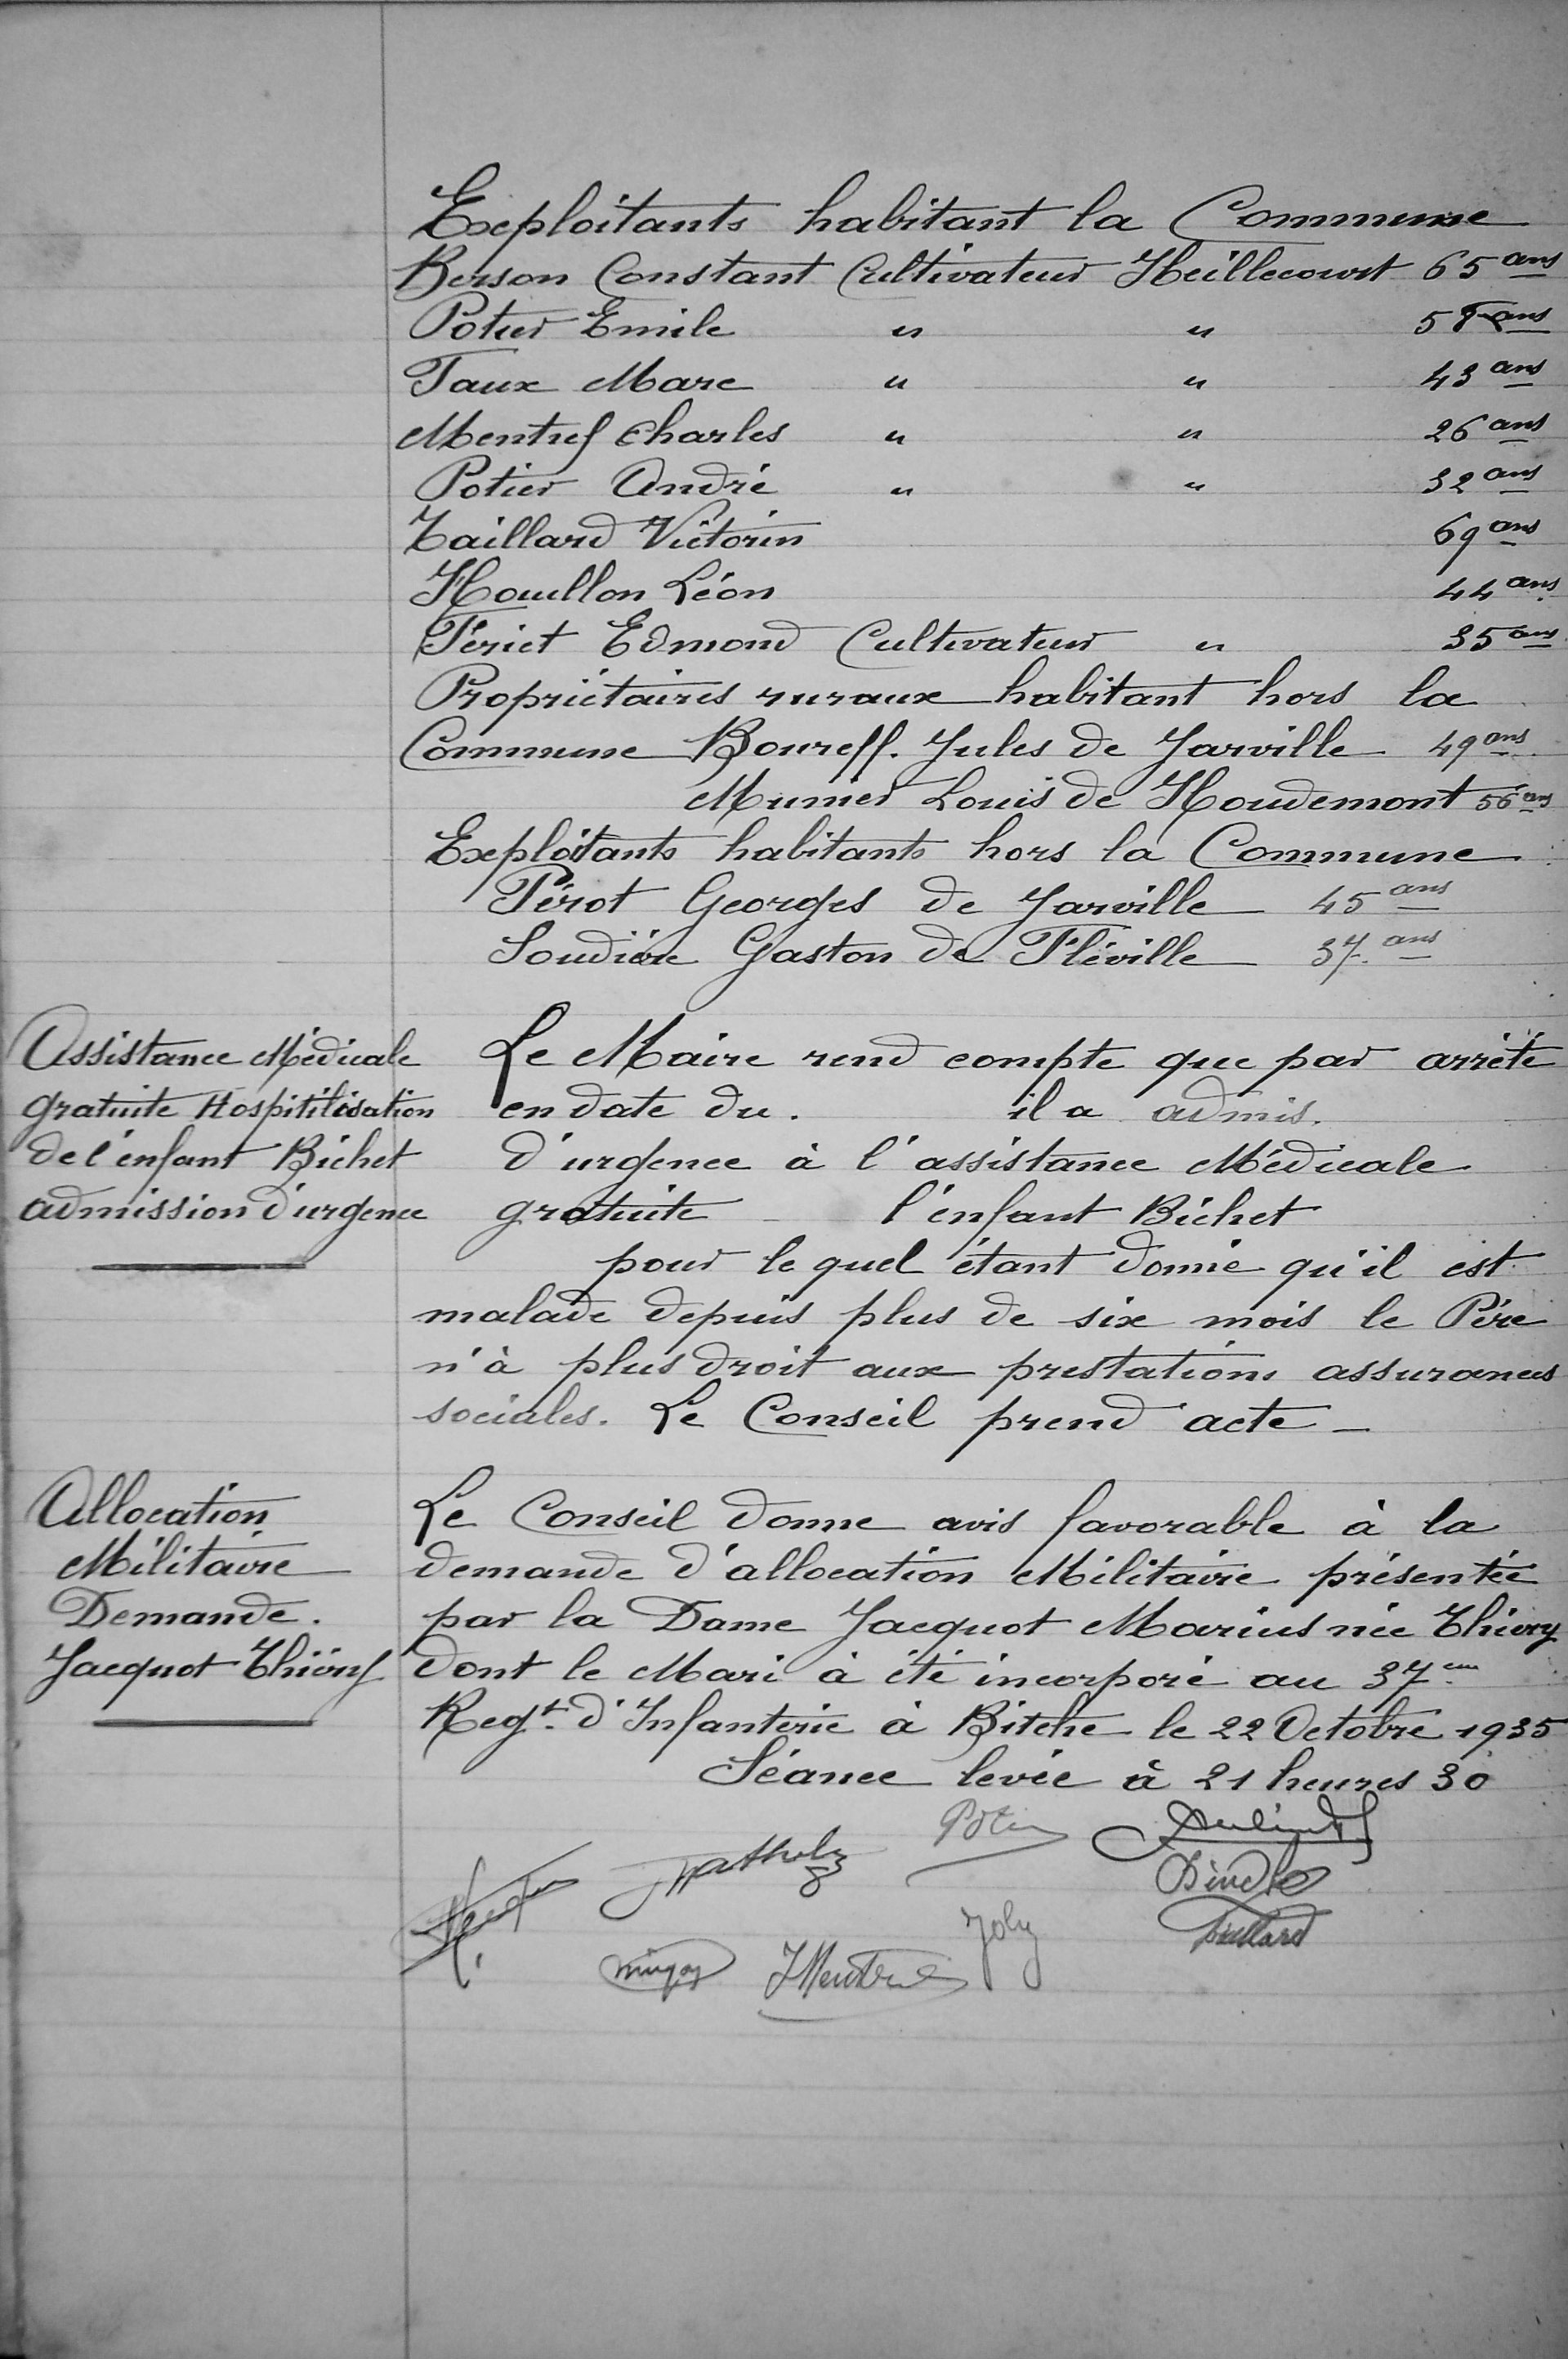 Exploitants habitant la Commune
Berson Constant Cultivateur Heillecourt 65 ans
Potier Emile " " 58 ans
Taux Marc " " 43 ans
Mentref Charles " " 26 ans
Potier André " " 32 ans
Taillard Victorin 69 ans
Houillon Léon 44 ans
Fériet Edmond Cultivateur " 35 ans
Propriétaires ruraux habitant hors la
Commune Boureff. Jules de Jarville 49 ans
Munier Louis de Houdemont 56 ans
Exploitants habitants hors la Commune
Pérot Georges de Jarville 45 ans
Soudière Gaston de Fléville 37 ans
Assistance Médicale
gratuite Hospitilisation
de l'enfant Bichet
admission d'urgence
Le Maire rend compte que par arrêté
en date du. il a admis.
d'urgence à l'assistance Médicale
gratuite l'enfant Bichet
pour lequel étant donné qu'il est
malade depuis plus de six mois le Père
n'à plus droit aux prestations assurances
sociales. Le Conseil prend acte -
Allocation
Militaire
Demande.
Jacquot Thiéry
Le Conseil donne avis favorable à la
demande d'allocation Militaire présentée
par la Dame Jacquot Marius née Thiéry
dont le Mari à été incorporé au 37ème
Regt. d'Infanterie à Bitche le 22 Octobre 1935
Séance levée à 21 heures 30
Potier
Joly
Taillard